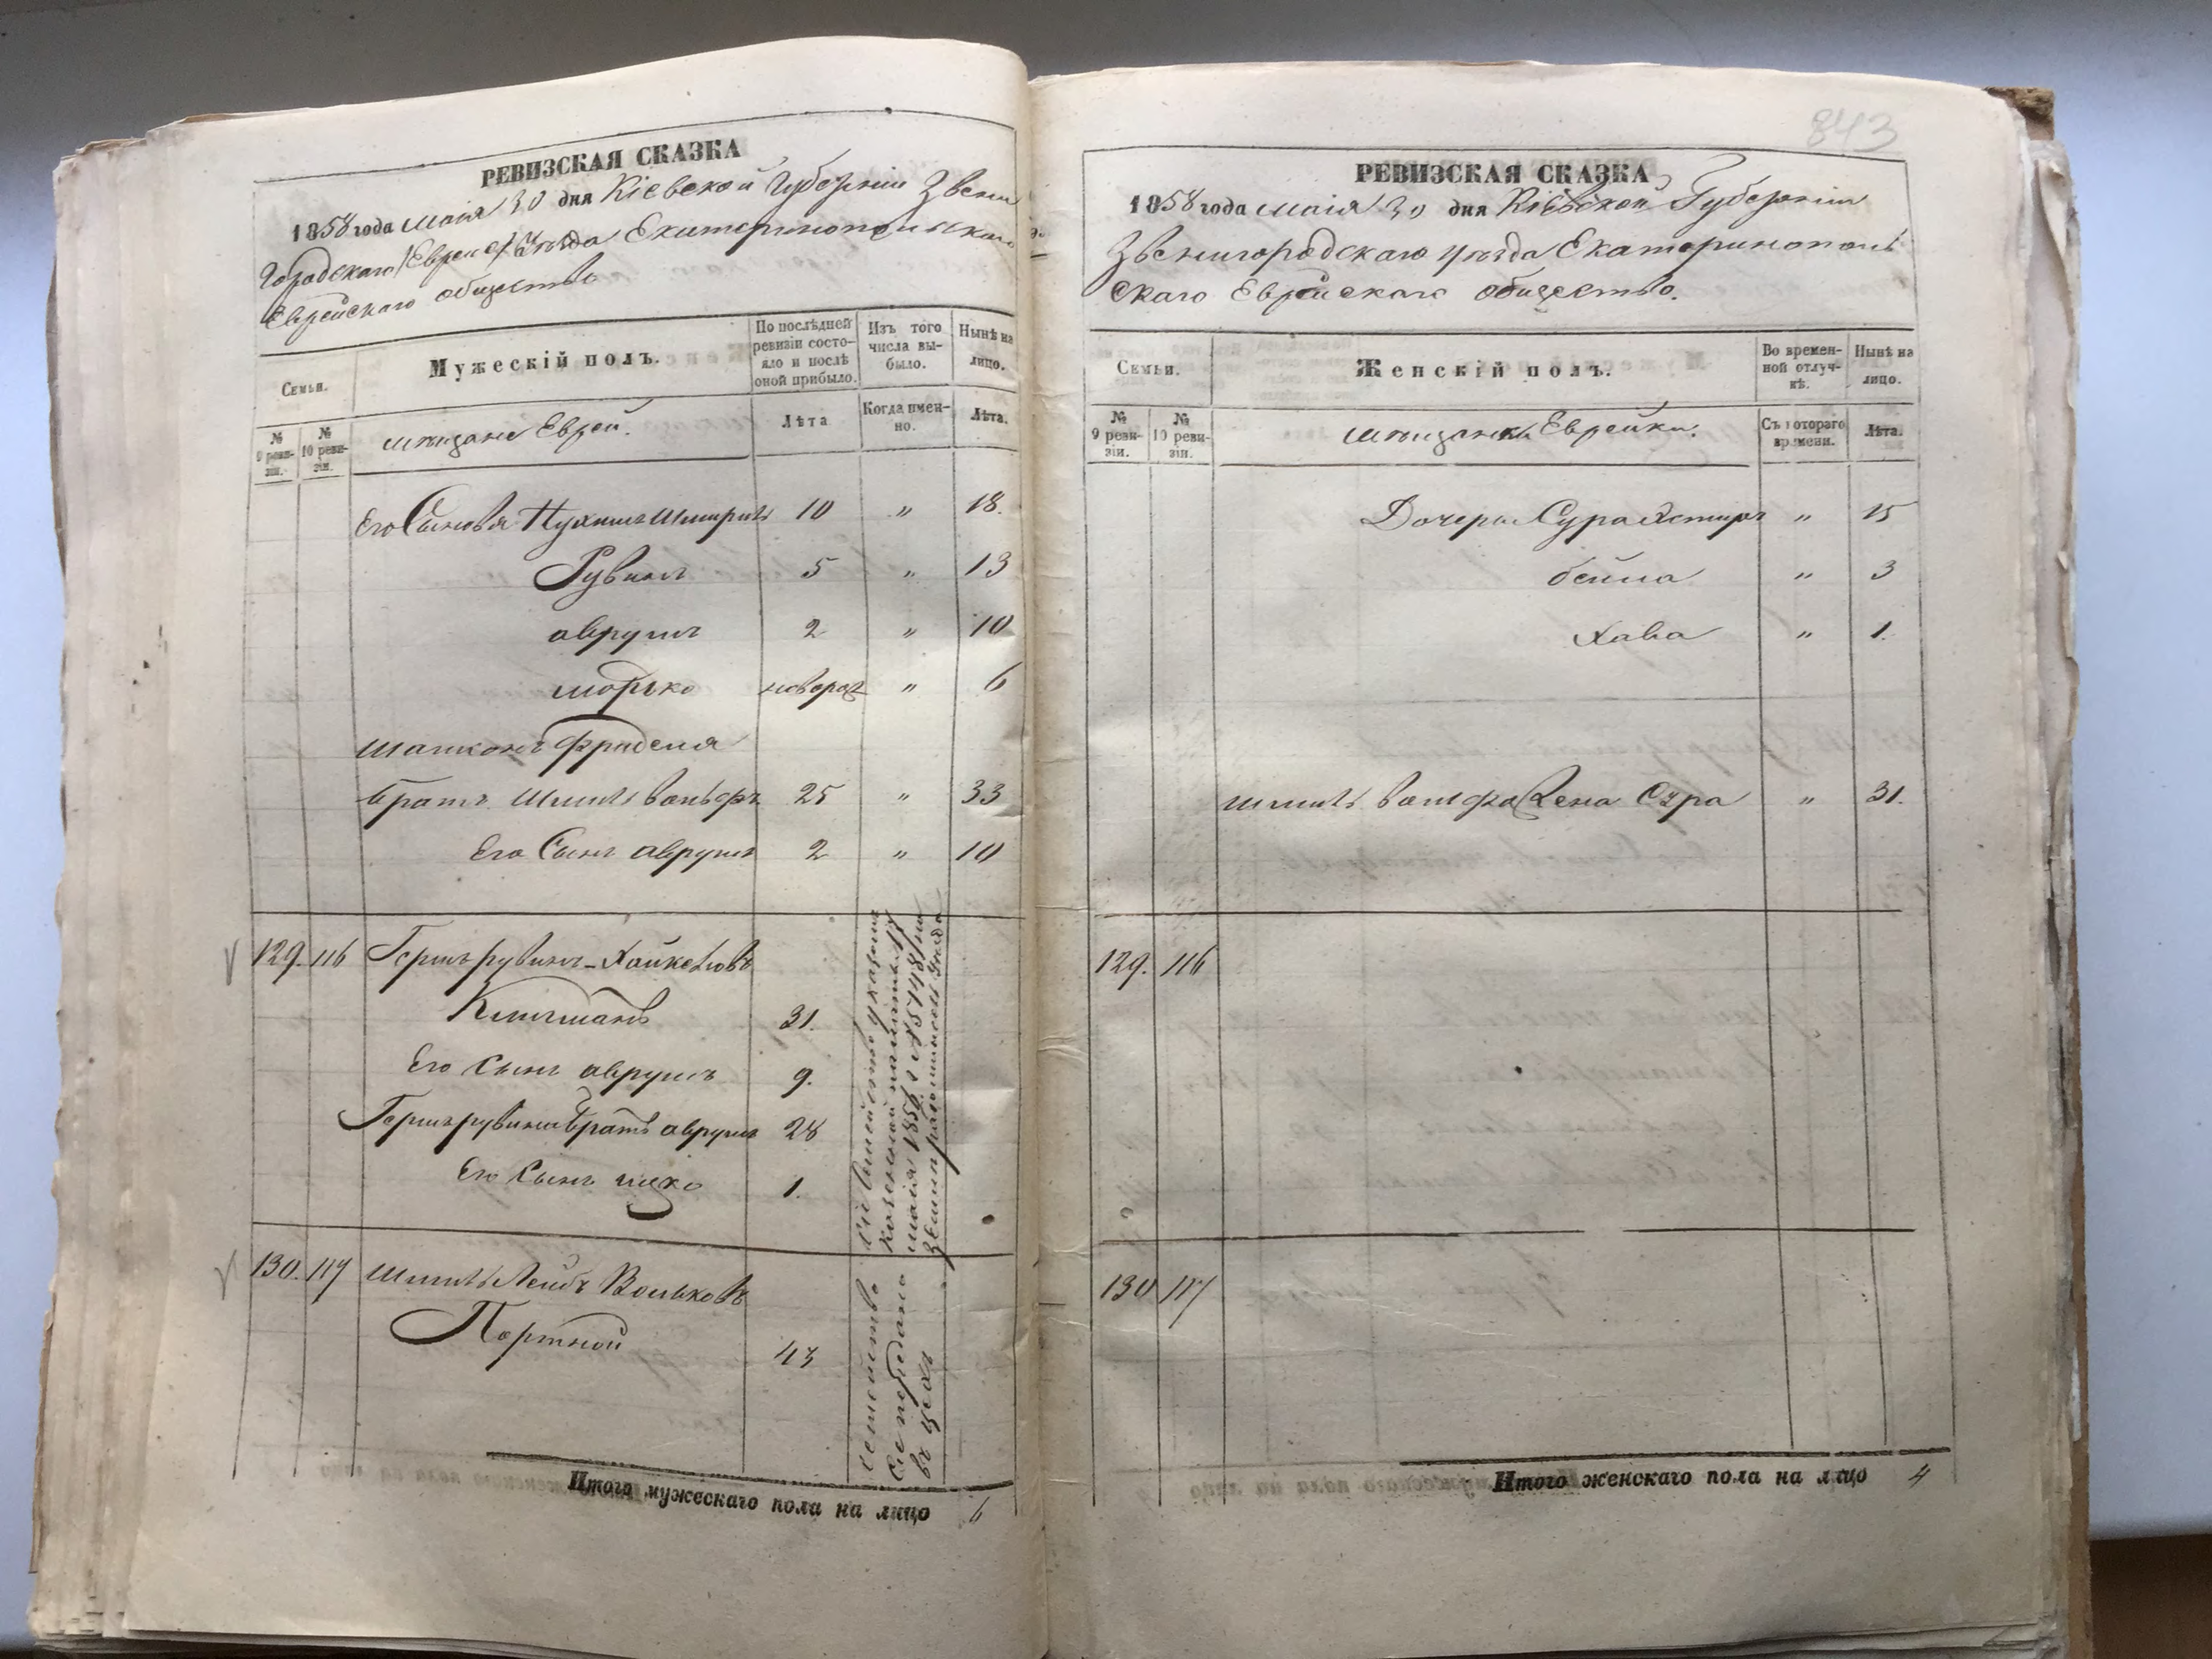 РЕВИЗСКАЯ СКАЗКА
1858 года маія 30 дня Кіевской Губерніи Звени
Городскаго /Евреи/ Уѣзда Екатеринопольскаго
Еврейскаго общества
Семьи.
Мужескій полъ.
По послѣдней ревизіи состояло и послѣ оной прибыло.
Изъ того числа выбыло.
Нынѣ на лицо.
№ 9 ревизіи.
№ 10 ревизіи.
мѣщане Еврей.
Лѣта
Когда именно.
Лѣта.
Его Сыновья Нухимъ Шмирилъ 10 " 18.
Рувинъ 5 " 13
аврумъ 2 " 10
морько новорож " 6
Фраделя
братъ Шмиль вольфъ 25 " 33
Его Сынъ аврумъ 2 " 10
129. 116 Гершъ рувинъ-Хайкелювъ
31.
Его Сынъ аврумъ 9.
Гершъ рувина братъ аврумъ 28
Его Сынъ ицко 1.
Сіе Семейство указомъ
казенной палаты 17
маія 185 г № 5748
130. 117 Шмиль Лейбъ Вольковъ
Портной 43
семейство
Сіе передано
въ цехъ
Итого мужескаго пола на лицо 6
843
РЕВИЗСКАЯ СКАЗКА
1858 года маія 30 дня Кіевской Губерніи
Звенигородскаго уѣзда Екатеринополь
скаго Еврейскаго общество.
Семьи.
Женскій полъ.
Во временной отлучкѣ.
Нынѣ на лицо.
№ 9 ревизіи.
№ 10 ревизіи.
мѣщанки Еврейки.
Съ котораго времени.
Лѣта.
Дочеры Сура Естиръ " 15
бейла " 3
Хава " 1.
Шмиль вольфа Жена Сура " 31.
129. 116
130 117
Итого женскаго пола на лицо 4